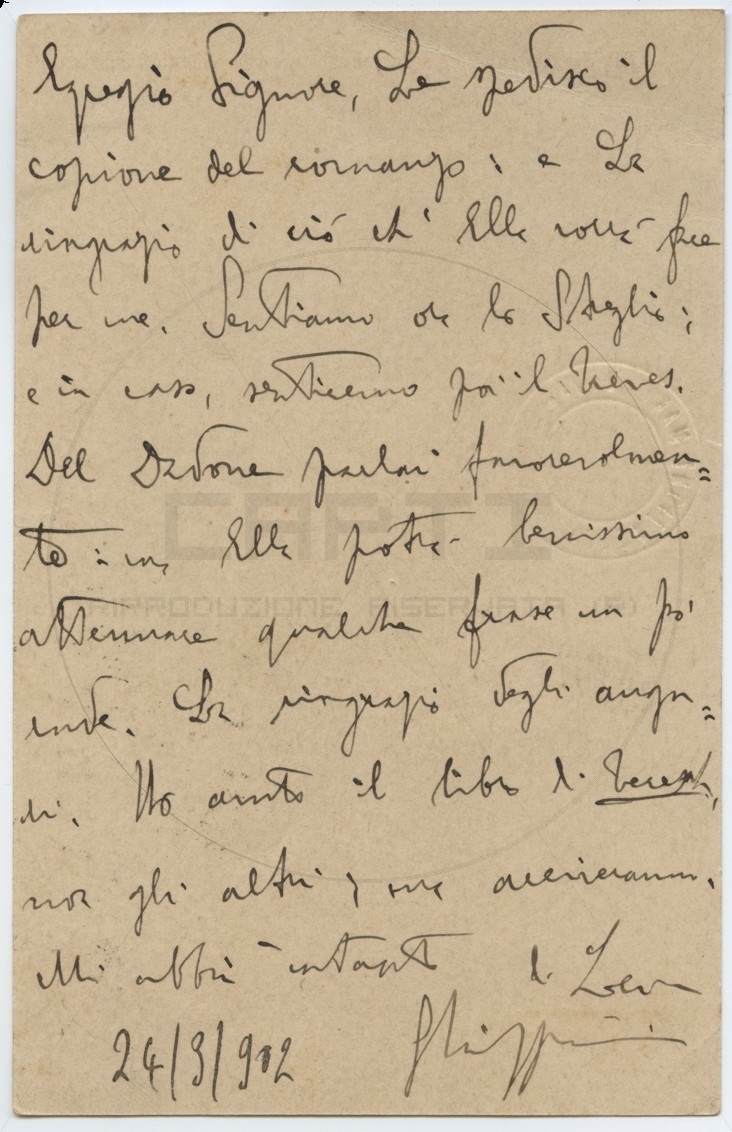 Egregio Signore, Le spedisco il
copione del romanzo: e La
ringrazio di ciò ch' Ella vorrà fare
per me. Sentiamo ora lo Steglio;
e in caso, sentiremo poi il Treves.
Del Dadone parlai favorevolmen=
te: ma Ella potrà benissimo
attenuare qualche frase un po'
rude. La ringrazio degli augu=
ri. Ho avuto il libro di
non gli altri; ma arriveranno.
Mi abbia intanto
24/3/902
CARTI
RIPRODUZIONE RISERVATA (R)